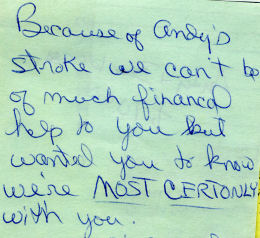 Because of Andy's
stroke we can't be
of much financal
help to you but
wanted you to know
we're MOST CERTONLY
with you.